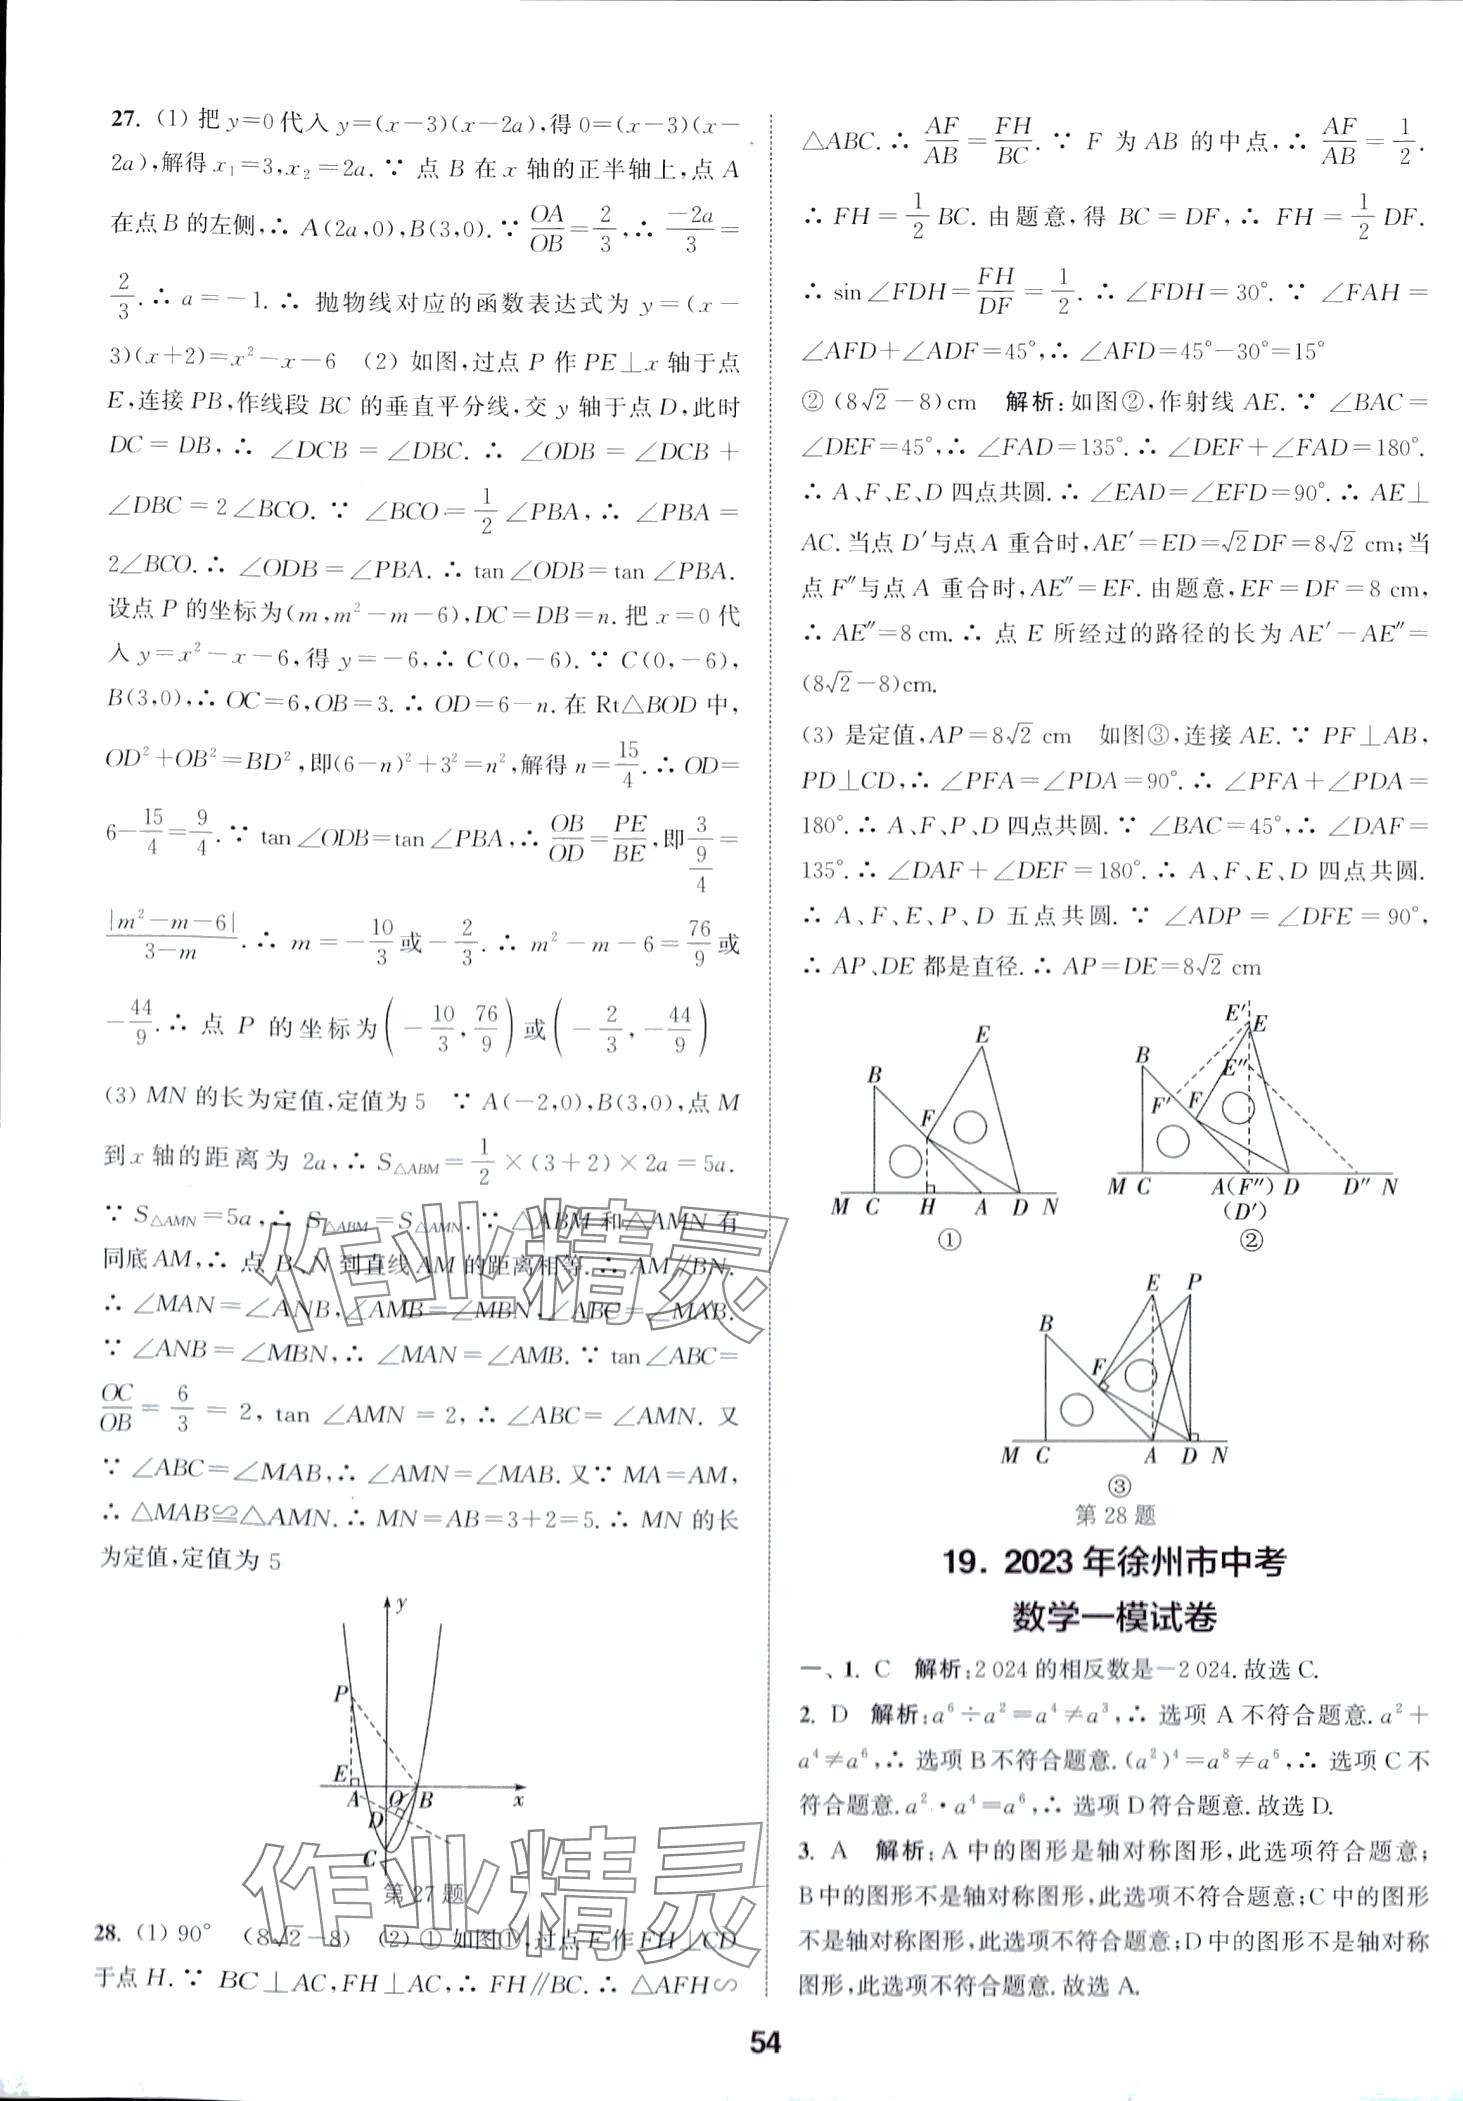 27. (1) 把 y=0 代入 y=(x-3)(x-2a),得 0=(x-3)(x-
2a),解得 x₁=3,x₂=2a.∵ 点 B 在 x 轴的正半轴上,点 A
在点 B 的左侧,∴ A(2a,0),B(3,0).∵ OA/OB=2/3,∴ -2a/3=
2/3.∴ a=-1.∴ 抛物线对应的函数表达式为 y=(x-
3)(x+2)=x²-x-6 (2) 如图,过点 P 作 PE⊥x 轴于点
E,连接 PB,作线段 BC 的垂直平分线,交 y 轴于点 D,此时
DC=DB,∴ ∠DCB=∠DBC.∴ ∠ODB=∠DCB+
∠DBC=2∠BCO.∵ ∠BCO=1/2∠PBA,∴ ∠PBA=
2∠BCO.∴ ∠ODB=∠PBA.∴ tan∠ODB=tan∠PBA.
设点 P 的坐标为(m,m²-m-6),DC=DB=n.把 x=0 代
入 y=x²-x-6,得 y=-6,∴ C(0,-6).∵ C(0,-6),
B(3,0),∴ OC=6,OB=3.∴ OD=6-n.在 Rt△BOD 中,
OD²+OB²=BD²,即(6-n)²+3²=n²,解得 n=15/4.∴ OD=
6-15/4=9/4.∵ tan∠ODB=tan∠PBA,∴ OB/OD=PE/BE,即 3/(9/4)=
|m²-m-6|/(3-m).∴ m=-10/3或-2/3.∴ m²-m-6=76/9或
-44/9.∴ 点 P 的坐标为(-10/3,76/9)或(-2/3,-44/9)
(3) MN 的长为定值,定值为 5 ∵ A(-2,0),B(3,0),点 M
到 x 轴的距离为 2a,∴ S△ABM=1/2×(3+2)×2a=5a.
∵ S△AMN=5a,∴ S△ABM=S△AMN.∵ △ABM 和△AMN 有
同底 AM,∴ 点 B、N 到直线 AM 的距离相等.∴ AM∥BN.
∴ ∠MAN=∠ANB,∠AMB=∠MBN,∠ABC=∠MAB.
∵ ∠ANB=∠MBN,∴ ∠MAN=∠AMB.∵ tan∠ABC=
OC/OB=6/3=2,tan∠AMN=2,∴ ∠ABC=∠AMN.又
∵ ∠ABC=∠MAB,∴ ∠AMN=∠MAB.又∵ MA=AM,
∴ △MAB≌△AMN.∴ MN=AB=3+2=5.∴ MN 的长
为定值,定值为 5
y
P
E
A
O
B
x
D
C
第 27 题
28. (1) 90° (8√2-8) (2) ① 如图①,过点 F 作 FH⊥CD
于点 H.∵ BC⊥AC,FH⊥AC,∴ FH∥BC.∴ △AFH∽
△ABC.∴ AF/AB=FH/BC.∵ F 为 AB 的中点,∴ AF/AB=1/2.
∴ FH=1/2BC.由题意,得 BC=DF,∴ FH=1/2DF.
∴ sin∠FDH=FH/DF=1/2.∴ ∠FDH=30°.∵ ∠FAH=
∠AFD+∠ADF=45°,∴ ∠AFD=45°-30°=15°
② (8√2-8)cm 解析:如图②,作射线 AE.∵ ∠BAC=
∠DEF=45°,∴ ∠FAD=135°.∴ ∠DEF+∠FAD=180°.
∴ A、F、E、D 四点共圆.∴ ∠EAD=∠EFD=90°.∴ AE⊥
AC.当点 D′与点 A 重合时,AE′=ED=√2DF=8√2 cm;当
点 F″与点 A 重合时,AE″=EF.由题意,EF=DF=8 cm,
∴ AE″=8 cm.∴ 点 E 所经过的路径的长为 AE′-AE″=
(8√2-8)cm.
(3) 是定值,AP=8√2 cm 如图③,连接 AE.∵ PF⊥AB,
PD⊥CD,∴ ∠PFA=∠PDA=90°.∴ ∠PFA+∠PDA=
180°.∴ A、F、P、D 四点共圆.∵ ∠BAC=45°,∴ ∠DAF=
135°.∴ ∠DAF+∠DEF=180°.∴ A、F、E、D 四点共圆.
∴ A、F、E、P、D 五点共圆.∵ ∠ADP=∠DFE=90°,
∴ AP、DE 都是直径.∴ AP=DE=8√2 cm
E
B
F
M C H A D N
①
E′ E
B
E″
F′ F
M C A(F″) D D″ N
(D′)
②
E P
B
F
M C A D N
③
第 28 题
19. 2023 年徐州市中考
数学一模试卷
一、1. C 解析:2 024 的相反数是-2 024.故选 C.
2. D 解析:a⁶÷a²=a⁴≠a³,∴ 选项 A 不符合题意.a²+
a⁴≠a⁶,∴ 选项 B 不符合题意.(a²)⁴=a⁸≠a⁶,∴ 选项 C 不
符合题意.a²·a⁴=a⁶,∴ 选项 D 符合题意.故选 D.
3. A 解析:A 中的图形是轴对称图形,此选项符合题意;
B 中的图形不是轴对称图形,此选项不符合题意;C 中的图形
不是轴对称图形,此选项不符合题意;D 中的图形不是轴对称
图形,此选项不符合题意.故选 A.
54
作业精灵
作业精灵